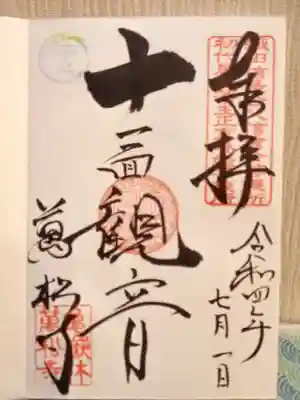 奉拝
令和四年
七月一日
十一面観音
萬松寺
亀岳林
萬松寺